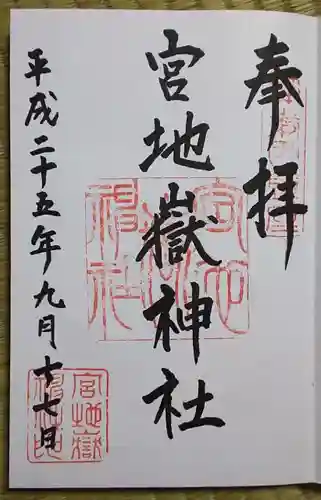 奉拝
宮地嶽神社
平成二十五年九月十七日
宮地嶽
神社